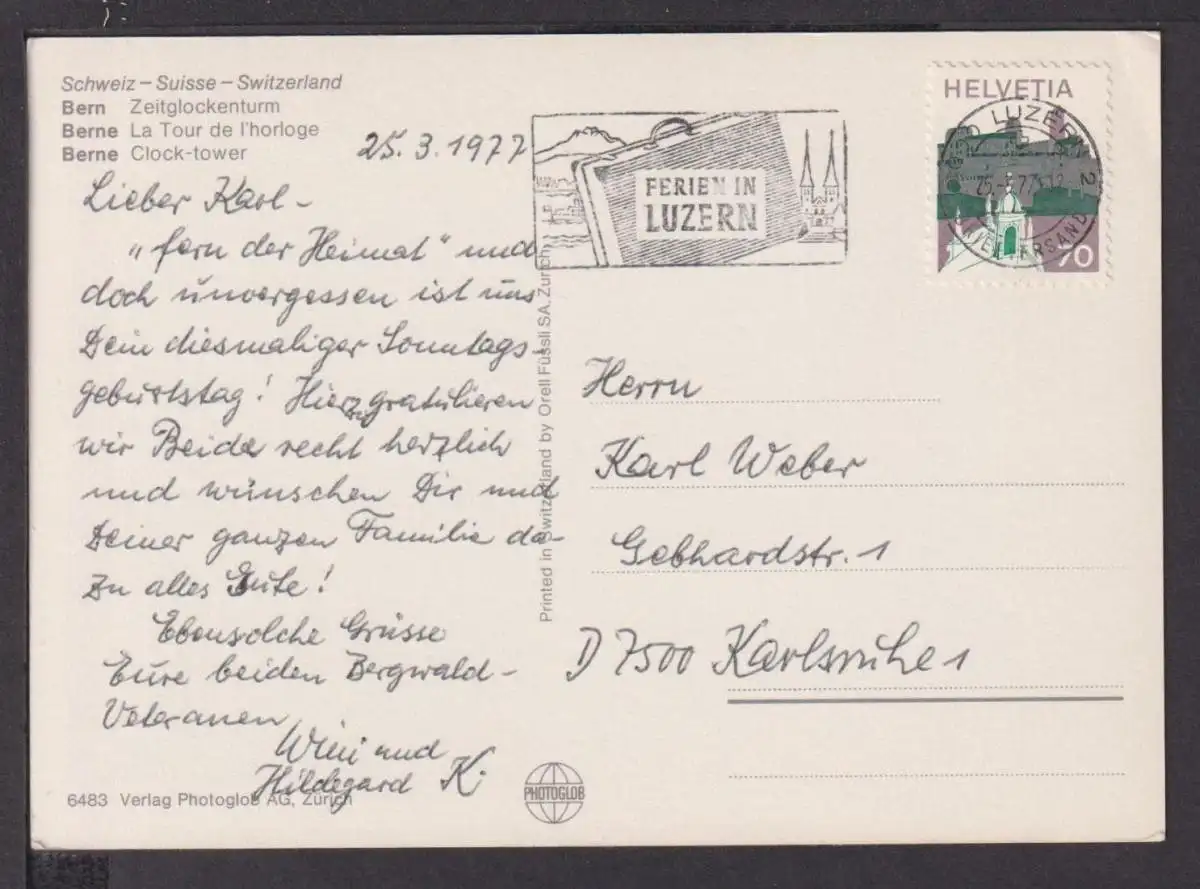 Schweiz – Suisse – Switzerland
Bern Zeitglockenturm
Berne La Tour de l'horloge
Berne Clock-tower
25.3.1977
Lieber Karl –
„fern der Heimat" und
doch unvergessen ist uns
Dein diesmaliger Sonntags-
geburtstag! Hierzu gratulieren
wir Beide recht herzlich
und wünschen Dir und
Deiner ganzen Familie da-
zu alles Gute!
Ebensolche Grüsse
Eure beiden Bergwald-
Veteranen
Wini und
Hildegard K.
6483 Verlag Photoglob AG, Zürich
PHOTOGLOB
Printed in Switzerland by Orell Füssli SA, Zürich
FERIEN IN
LUZERN
HELVETIA
LUZERN 2
70
Herrn
Karl Weber
Gebhardstr. 1
D 7500 Karlsruhe 1